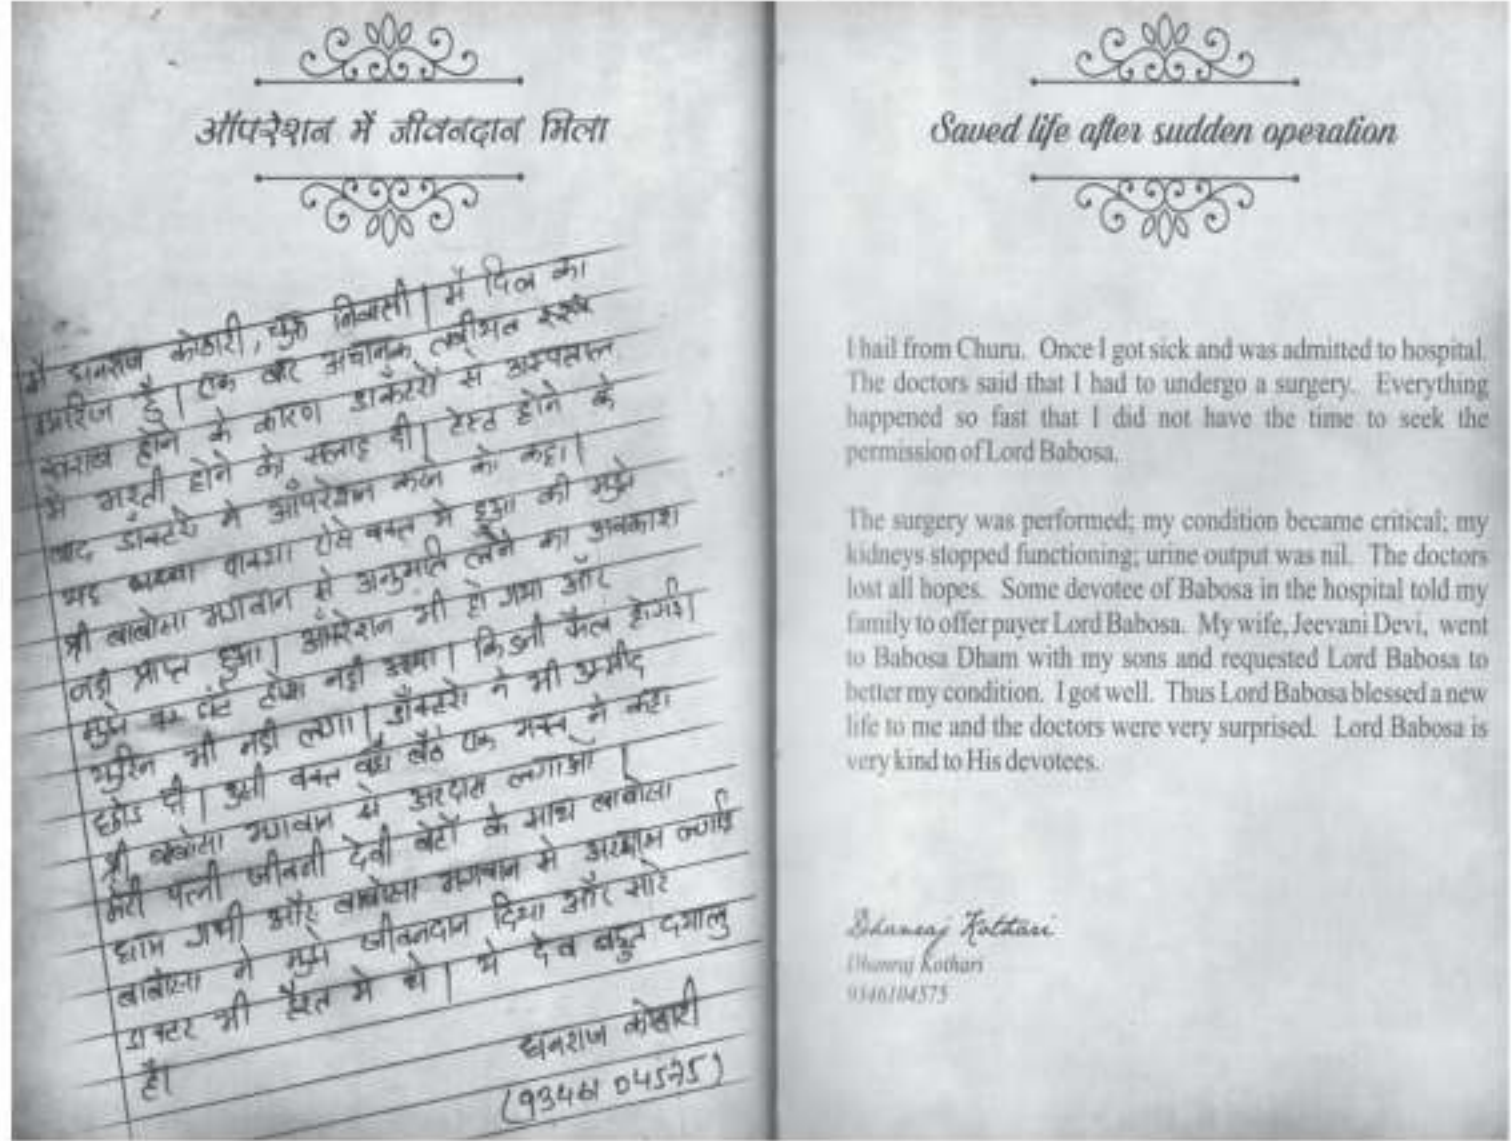 ऑपरेशन में जीवनदान मिला
मै धनराज कोठारी, चुरू निवासी | मैं दिल का
मरिज हूँ | एक बार अचानक तबीयत
खराब होने के कारण डाक्टरों से अस्पताल
मे भरती होने की सलाह दी | टेस्ट होने के
बाद डॉक्टरो ने ऑपरेशन करने को कहा |
यह ऐसे वक्त मे हुआ की मुझे
श्री बाबोसा भगवान से अनुमति लेने का अवकाश
नही प्राप्त हुआ | ऑपरेशन भी हो गया और
मुझे घंटे होश नही आया | किडनी फैल होगई |
युरिन भी नही लगा | डॉक्टरो ने भी उम्मीद
छोड दी | उसी वक्त वहाँ बैठे एक भक्त ने कहा
श्री बाबोसा भगवान से अरदास लगाओ |
मेरी पत्नी जीवनी देवी बेटों के साथ बाबोसा
धाम गयी और बाबोसा भगवान से अरदास लगाई
बाबोसा ने मुझे जीवनदान दिया और सारे
डाक्टर भी हैरत मे थे | ये देव बहुत दयालु
है|
धनराज कोठारी
(93461 04575)
Saved life after sudden operation
I hail from Churu. Once I got sick and was admitted to hospital.
The doctors said that I had to undergo a surgery. Everything
happened so fast that I did not have the time to seek the
permission of Lord Babosa.
The surgery was performed; my condition became critical; my
kidneys stopped functioning; urine output was nil. The doctors
lost all hopes. Some devotee of Babosa in the hospital told my
family to offer payer Lord Babosa. My wife, Jeevani Devi, went
to Babosa Dham with my sons and requested Lord Babosa to
better my condition. I got well. Thus Lord Babosa blessed a new
life to me and the doctors were very surprised. Lord Babosa is
very kind to His devotees.
Dhanraj Kothari
Dhanraj Kothari
9346104575